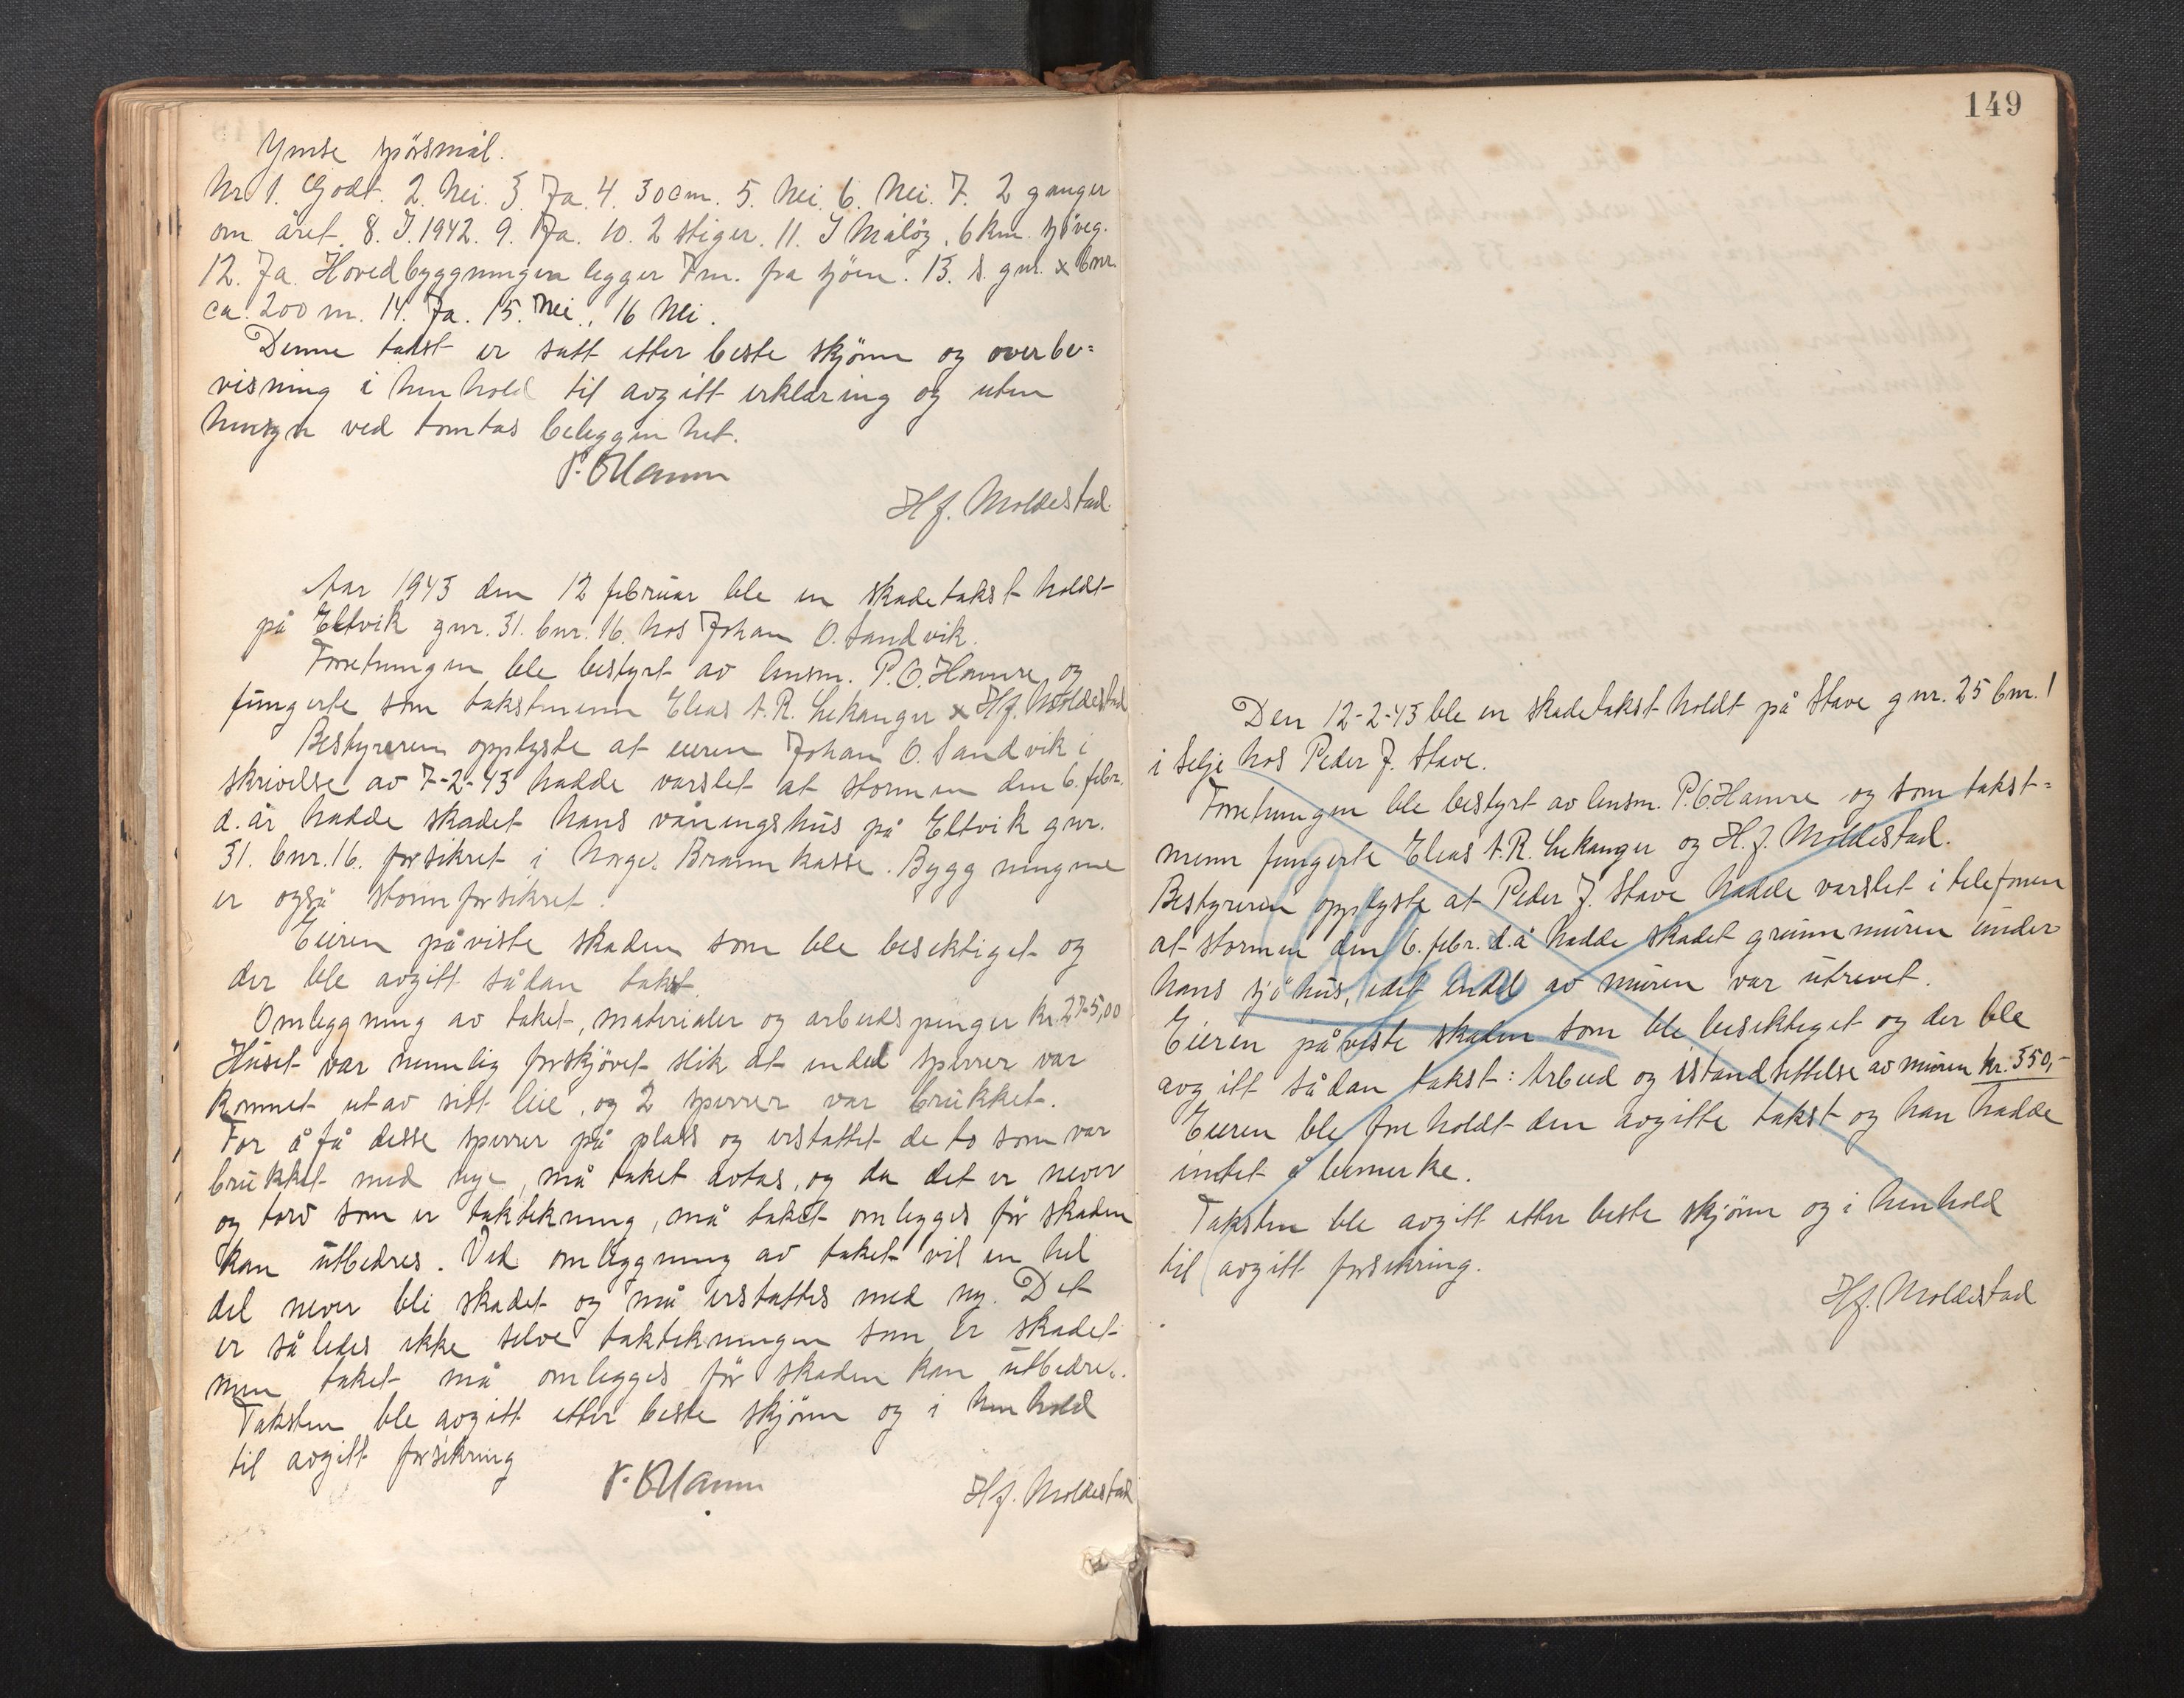 Ymse spörsmål.
Nr 1. Godt. 2. Nei. 3. Ja. 4. 30 cm. 5. Nei. 6. Nei. 7. 2 ganger
om året. 8. I. 1942. 9. Ja. 10. 2 stiger. 11. I Målöy, 6 km. sjöveg.
12. Ja. Hovedbyggningen legger 7 m. fra sjöen. 13. s. gnr. x bnr.
ca. 200 m. 14. Ja. 15. Nei., 16 Nei.
Denne takst er satt etter beste skjönn og overbe=
visning i henhold til avgitt erklæring og uten
hensyn ved tomtas beleggenhet.
P. O Hamre
H J. Moldestad.
Aar 1943 den 12 februar ble en skadetakst holdt
på Eltvik gnr. 31. bnr. 16. hos Johan O. Sandvik.
Forretningen ble bestyrt av lensm. P. O. Hamre og
fungerte som takstmenn Elias A. R. Lekanger x H J. Moldestad
Bestyreren opplyste at eieren Johan O. Sandvik i
skrivelse av 7-2-43 hadde varslet at stormen den 6. febr.
d. år hadde skadet hans våningshus på Eltvik gnr.
31. bnr. 16. forsikret i Norges Brannkasse. Byggningene
er også stormforsikret.
Eieren påviste skaden som ble besektiget og
der ble avgitt sådan takst.
Omleggning av taket, materialer og arbeidspenger kr. 275,00
Huset var nemlig forskjövet slik at endel sperrer var
kommet ut av sitt leie, og 2 sperrer var brukket.
For å få desse sperrer på plass og erstattet de to som var
brukket med nye, må taket avtas, og da det er never
og torv som er taktekning, må taket omlegges för skaden
kan utbedres. Ved omleggning av taket vil en hel
del never bli skadet og må erstattes med ny. Det
er således ikke selve taktekningen som er skadet
men taket må omlegges för skaden kan utbedres.
Taksten ble avgitt etter beste skjönn og i henhold
til avgitt forsikring
P. O Hamre
H J. Moldestad
149
Den 12-2-43 ble en skadetakst holdt på Stave gnr. 25 bnr. 1
i Selje hos Peder J. Stave.
Forretningen ble bestyrt av lensm. P. O. Hamre og som takst=
menn fungerte Elias A. R. Lekanger og H. J. Moldestad.
Bestyreren opplyste at Peder J. Stave hadde varslet i telefonen
at stormen den 6. febr. d. å hadde skadet grunnmuren under
hans sjöhus, idet endel av muren var utrevet.
Eieren påviste skaden som ble besektiget og der ble
avgitt sådan takst: Arbeid og istandsettelse av muren kr. 350,-
Eieren ble foreholdt den avgitte takst og han hadde
intet å bemerke.
Taksten ble avgitt etter beste skjönn og i henhold
til avgitt forsikring.
H J. Moldestad